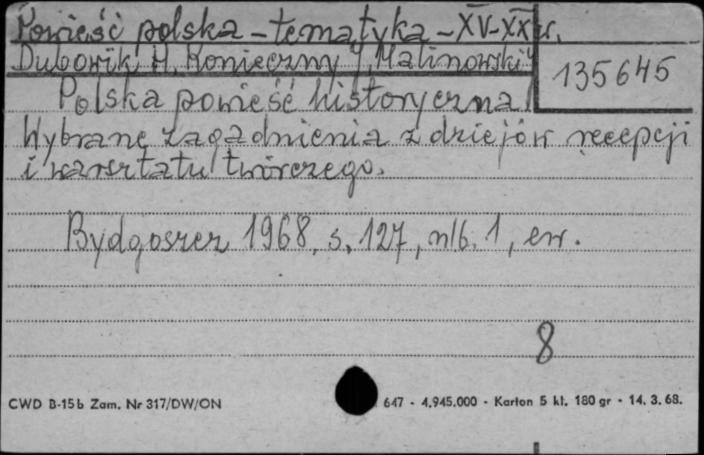 Powieść polska - tematyka - XV-XX w.
Dubowik H, Konieczny J, Malinowski J
135645
Polska powieść historyczna
Wybrane zagadnienia z dziejów recepcji
i warsztatu twórczego.
Bydgoszcz 1968, s. 127, nlb. 1, err.
8
CWD B-15b Zam. Nr 317/DW/ON 647 - 4.945.000 - Karton 5 kl. 180 gr - 14. 3. 68.